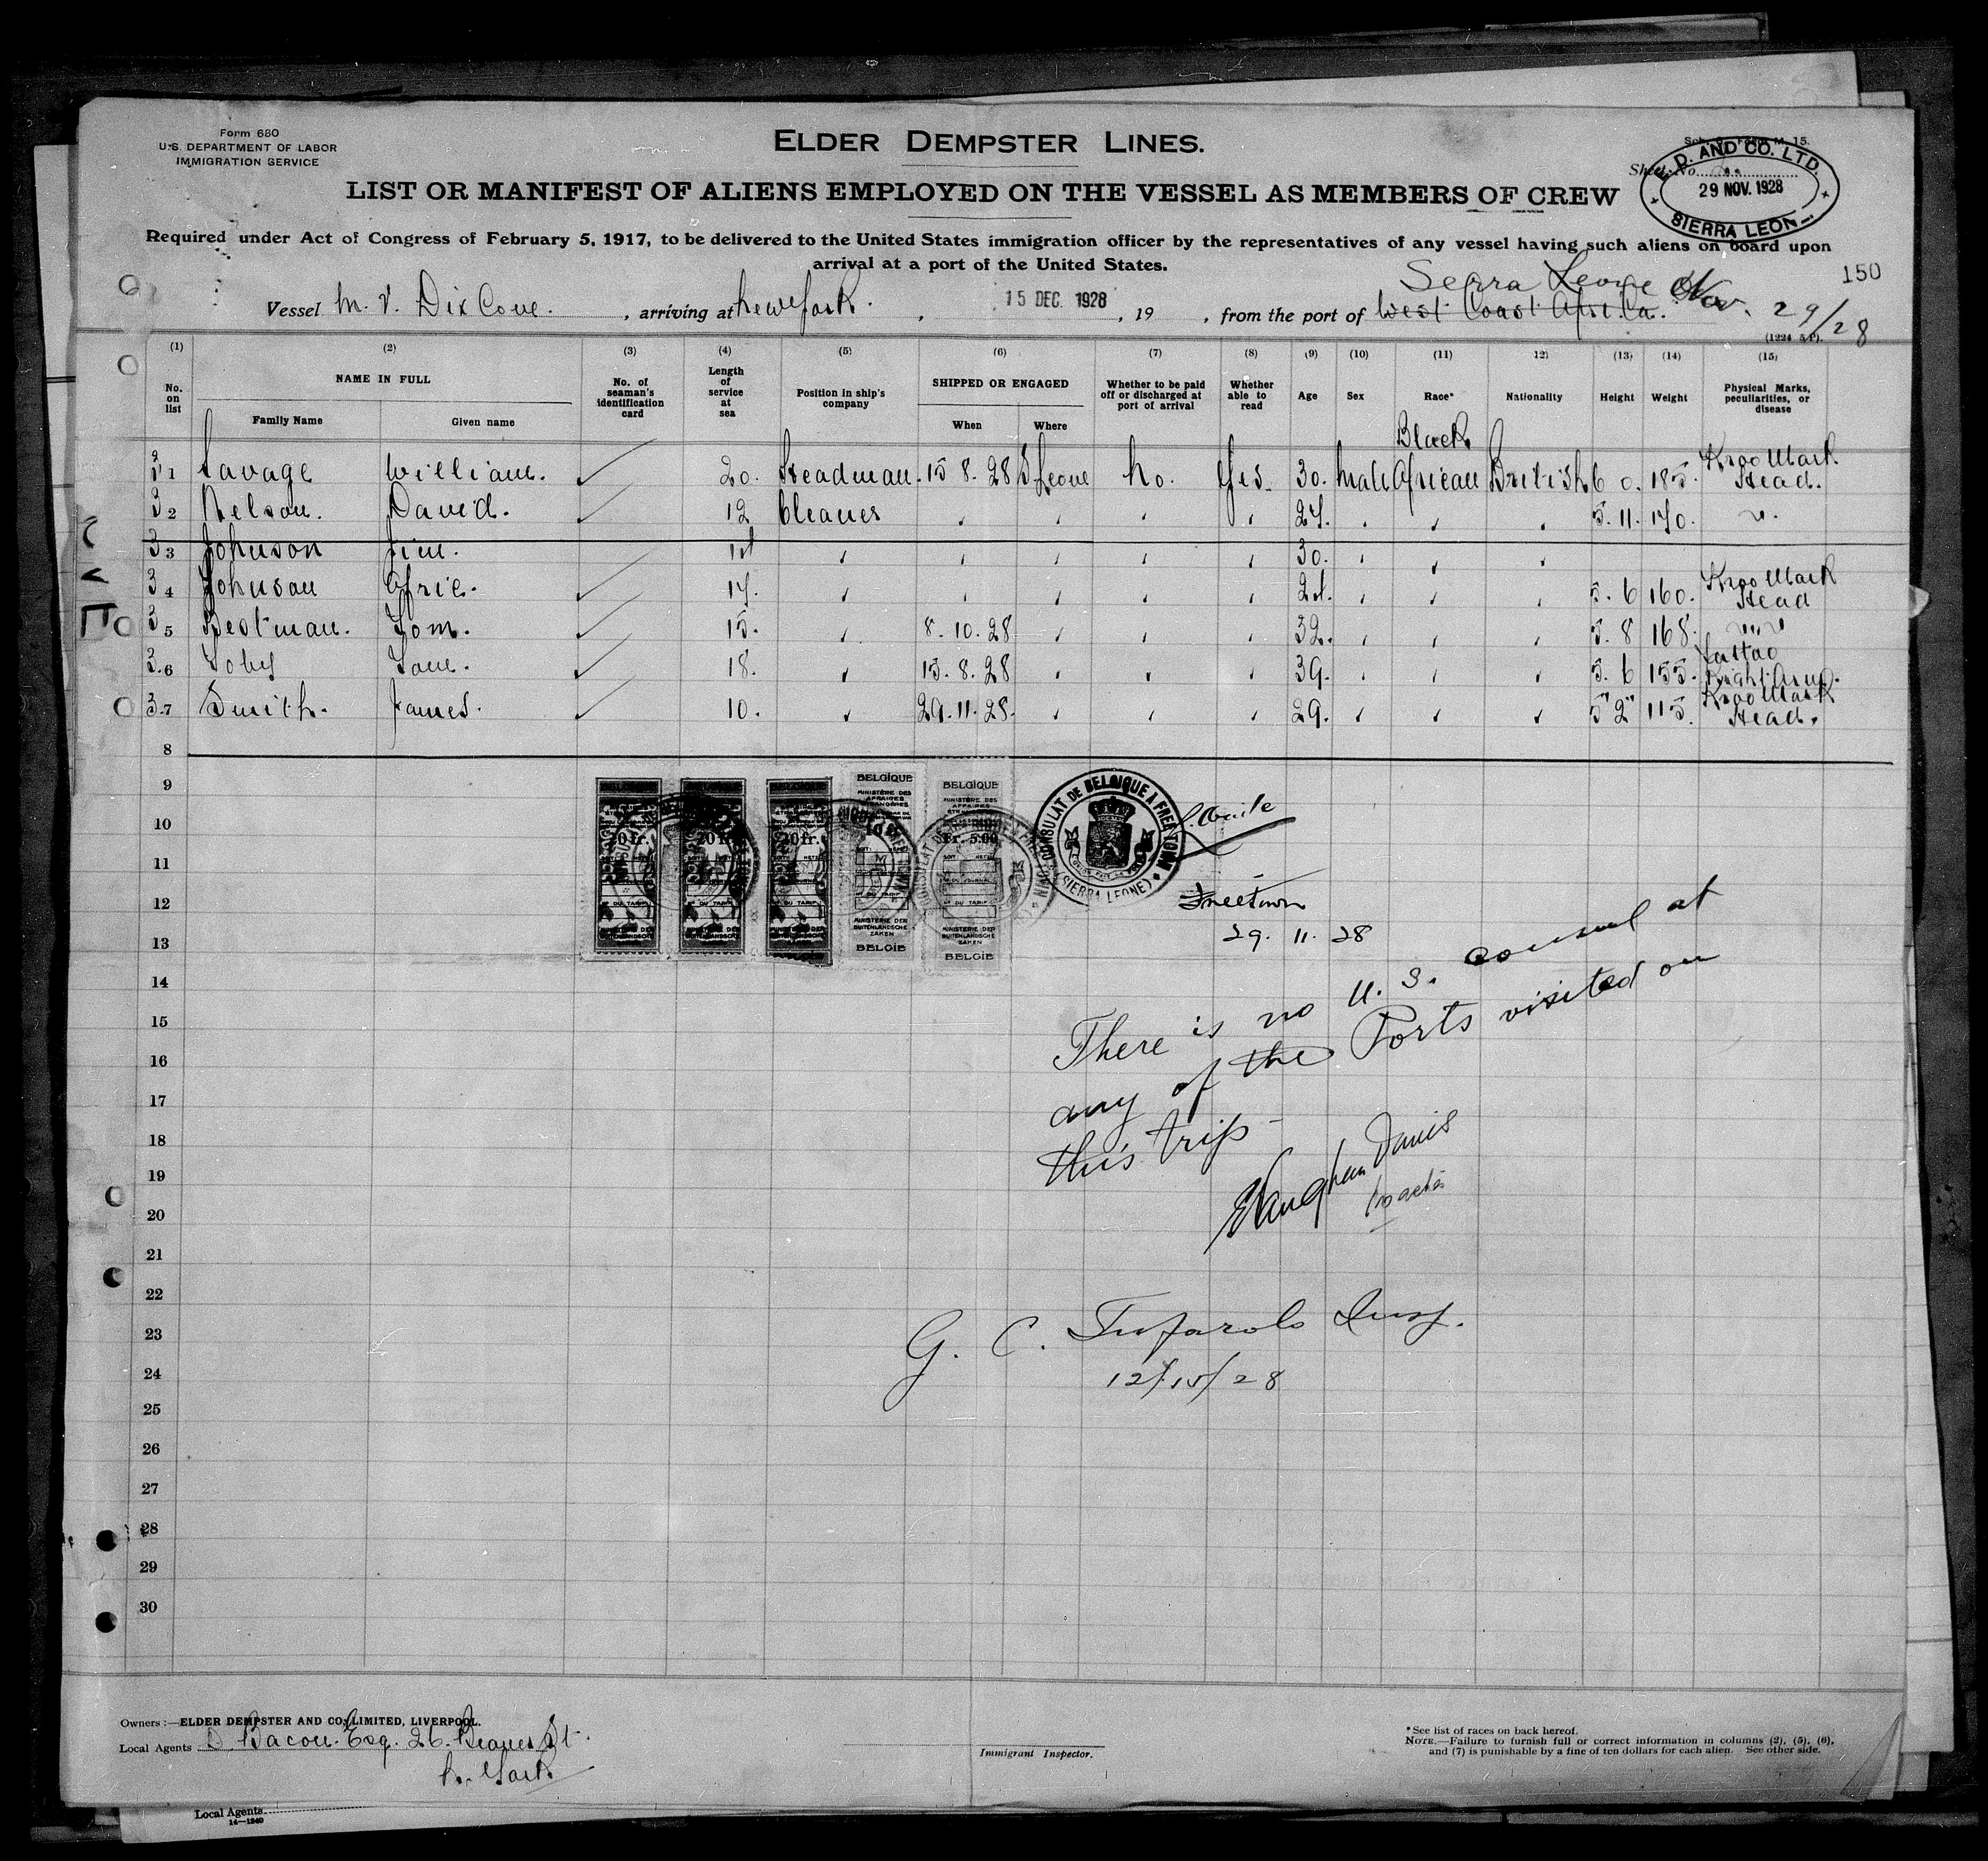 Form 680
U.S. DEPARTMENT OF LABOR
IMMIGRATION SERVICE
ELDER DEMPSTER LINES.
Sheet No.
E. D. AND CO. LTD.
29 NOV. 1928
SIERRA LEONE
LIST OR MANIFEST OF ALIENS EMPLOYED ON THE VESSEL AS MEMBERS OF CREW
Required under Act of Congress of February 5, 1917, to be delivered to the United States immigration officer by the representatives of any vessel having such aliens on board upon
arrival at a port of the United States.
150
Sierra Leone Nov. 29/28
Vessel M. V. Dix Cove. , arriving at New York. , 15 DEC. 1928 , 19 , from the port of West Coast Africa.
(1) (2) (3) (4) (5) (6) (7) (8) (9) (10) (11) (12) (13) (14) (15)
No. on list NAME IN FULL Family Name Given name No. of seaman's identification card Length of service at sea Position in ship's company SHIPPED OR ENGAGED When Where Whether to be paid off or discharged at port of arrival Whether able to read Age Sex Race* Nationality Height Weight Physical Marks, peculiarities, or disease
Black
1 Savage William. 20. Headman. 15 8. 28 S Leone No. Yes. 30. Male African British 6 0. 185. Kroo Mark Head.
2 Nelson. David. 12 Cleaner 27. 5. 11. 170.
3 Johnson Jim. 30.
4 Johnson Afric. 17. 5. 6 160. Kroo Mark Head
5 Bestman. Tom. 15. 8. 10. 28 32. 5. 8 168.
6 Toby Sam. 18. 15. 8. 28 39. 5. 6 155. Tattoo Right Arm.
7 Smith. James. 10. 29. 11. 28. 29. 5" 2" 115. Kroo Mark Head.
8
9
10
11
12
13
14
15
16
17
18
19
20
21
22
23
24
25
26
27
28
29
30
BELGIQUE
MINISTÈRE DES AFFAIRES ETRANGÈRES
20 fr. 20 fr. 20 fr. Fr. 5.00
N° DU TARIF
MINISTERIE DER BUITENLANDSCHE ZAKEN
BELGIË
CONSULAT DE BELGIQUE A FREETOWN
(SIERRA LEONE)
Freetown
29. 11. 28
There is no U. S. consul at
any of the Ports visited on
this trip -
Vaughan Davis
Master
G. C. Insp.
12/15/28
Owners:—ELDER DEMPSTER AND CO., LIMITED, LIVERPOOL.
Local Agents D. Bacon. Esq. 26. Beaver St.
N. York
Immigrant Inspector.
*See list of races on back hereof.
NOTE.—Failure to furnish full or correct information in columns (2), (5), (6),
and (7) is punishable by a fine of ten dollars for each alien. See other side.
Local Agents
14—1240